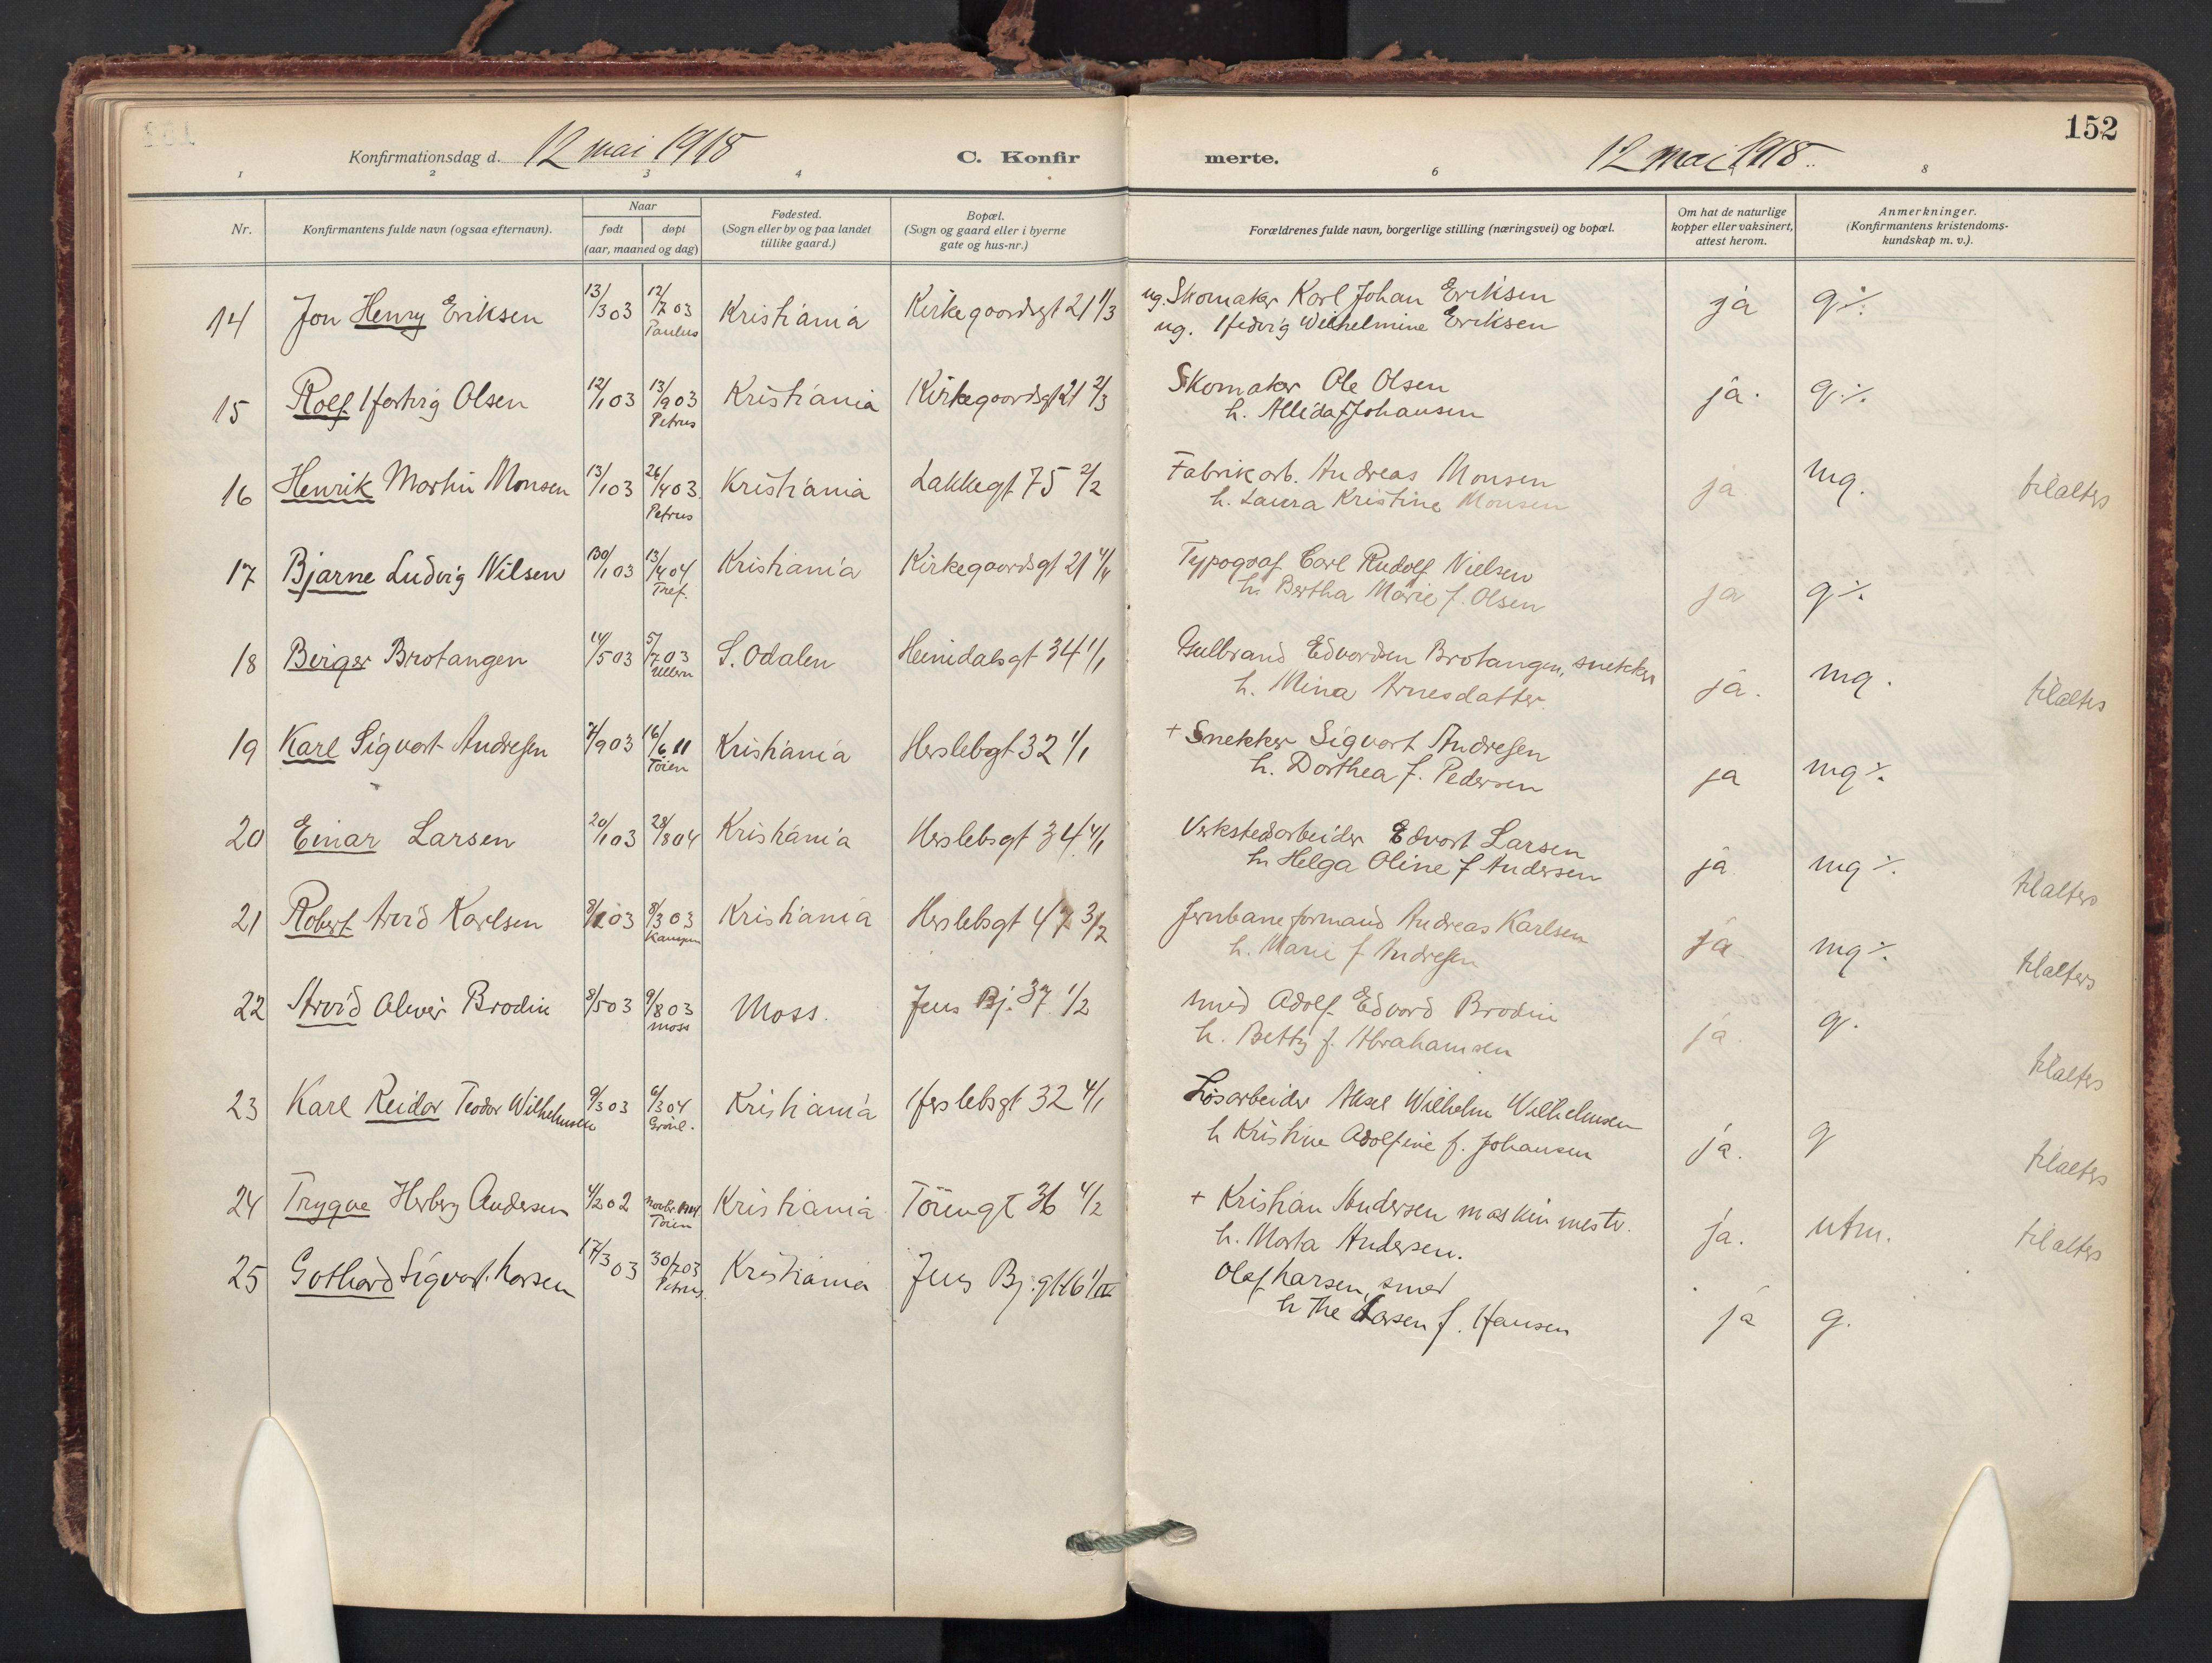 152
Konfirmationsdag d. 12 mai 1918
C. Konfirmerte.
12 mai 1918.
1 2 3 4 6 8
Nr.
Konfirmantens fulde navn (ogsaa efternavn).
Naar
født
døpt
(aar, maaned og dag)
Fødested.
(Sogn eller by og paa landet
tillike gaard.)
Bopæl.
(Sogn og gaard eller i byerne
gate og hus-nr.)
Forældrenes fulde navn, borgerlige stilling (næringsvei) og bopæl.
Om hat de naturlige
kopper eller vaksinert,
attest herom.
Anmerkninger.
(Konfirmantens kristendoms-
kundskap m. v.).
14 Jon Henry Eriksen 13/3 03 12/7 03 Paulus Kristiania Kirkegaardsgt 21 1/3
ug. Skomaker Karl Johan Eriksen
ug. Hedvig Wilhelmine Eriksen ja g ./.
15 Rolf Hartvig Olsen 12/1 03 13/9 03 Petrus Kristiania Kirkegaardsgt 21 2/3
Skomaker Ole Olsen
h. Allida f Johansen ja. g ./.
16 Henrik Martin Monsen 13/1 03 26/4 03 Petrus Kristiania Lakkegt 75 2/2
Fabrikarb. Andreas Monsen
h. Laura Kristine Monsen ja mg. tilalters
17 Bjarne Ludvig Nilsen 30/1 03 13/4 04 Tref. Kristiania Kirkegaardsgt 21 4/4
Typograf Carl Rudolf Nielsen
h. Bertha Marie f. Olsen ja g ./.
18 Birger Brotangen 14/5 03 5/7 03 Ullern S. Odalen Heimdalsgt 34 1/1
Gulbrand Edvardsen Brotangen, snekker
h. Mina Arnesdatter. ja. mg. tilalters
19 Karl Sigvart Andresen 7/9 03 16/6 11 Töien Kristiania Herslebgt 32 1/1
+ Snekker Sigvart Andresen
h. Dorthea f. Pedersen ja mg ./.
20 Einar Larsen 20/1 03 28/8 04 Kristiania Herslebsgt 34 4/1
Verkstedarbeider Edvart Larsen
h. Helga Oline f Andersen ja mg ./. tilalters
21 Robert Arvid Karlsen 8/1 03 8/3 03 Kampen Kristiania Herslebsgt 47 3/2
Jernbaneformand Andreas Karlsen
h. Marie f Andresen ja. mg ./. tilalters
22 Arvid Oliver Brodin 8/5 03 9/8 03 Moss Moss. Jens Bj. 37 1/2
smed Adolf Edvard Brodin
h. Betty f. Abrahamsen ja. g. tilalters
23 Karl Reidar Teodor Wilhelmsen 9/3 03 6/3 04 Grönl. Kristiania Herslebsgt 32 4/1
Løsarbeider Aksel Wilhelm Wilhelmsen
h Kristine Adolfine f. Johansen ja. g tilalters
24 Trygve Herberg Andersen 4/2 02 Novbr. 1904 Töien Kristiania Töiengt 36 4/2
+ Kristian Andersen maskinmestr.
h. Marta Andersen. ja. utm. tilalters
25 Gothard Sigvart Larsen 17/3 03 30/7 03 Petrus. Kristiania Jens Bj. gt 16 1/III
Olaf Larsen, smed
h The Larsen f. Hansen ja g.